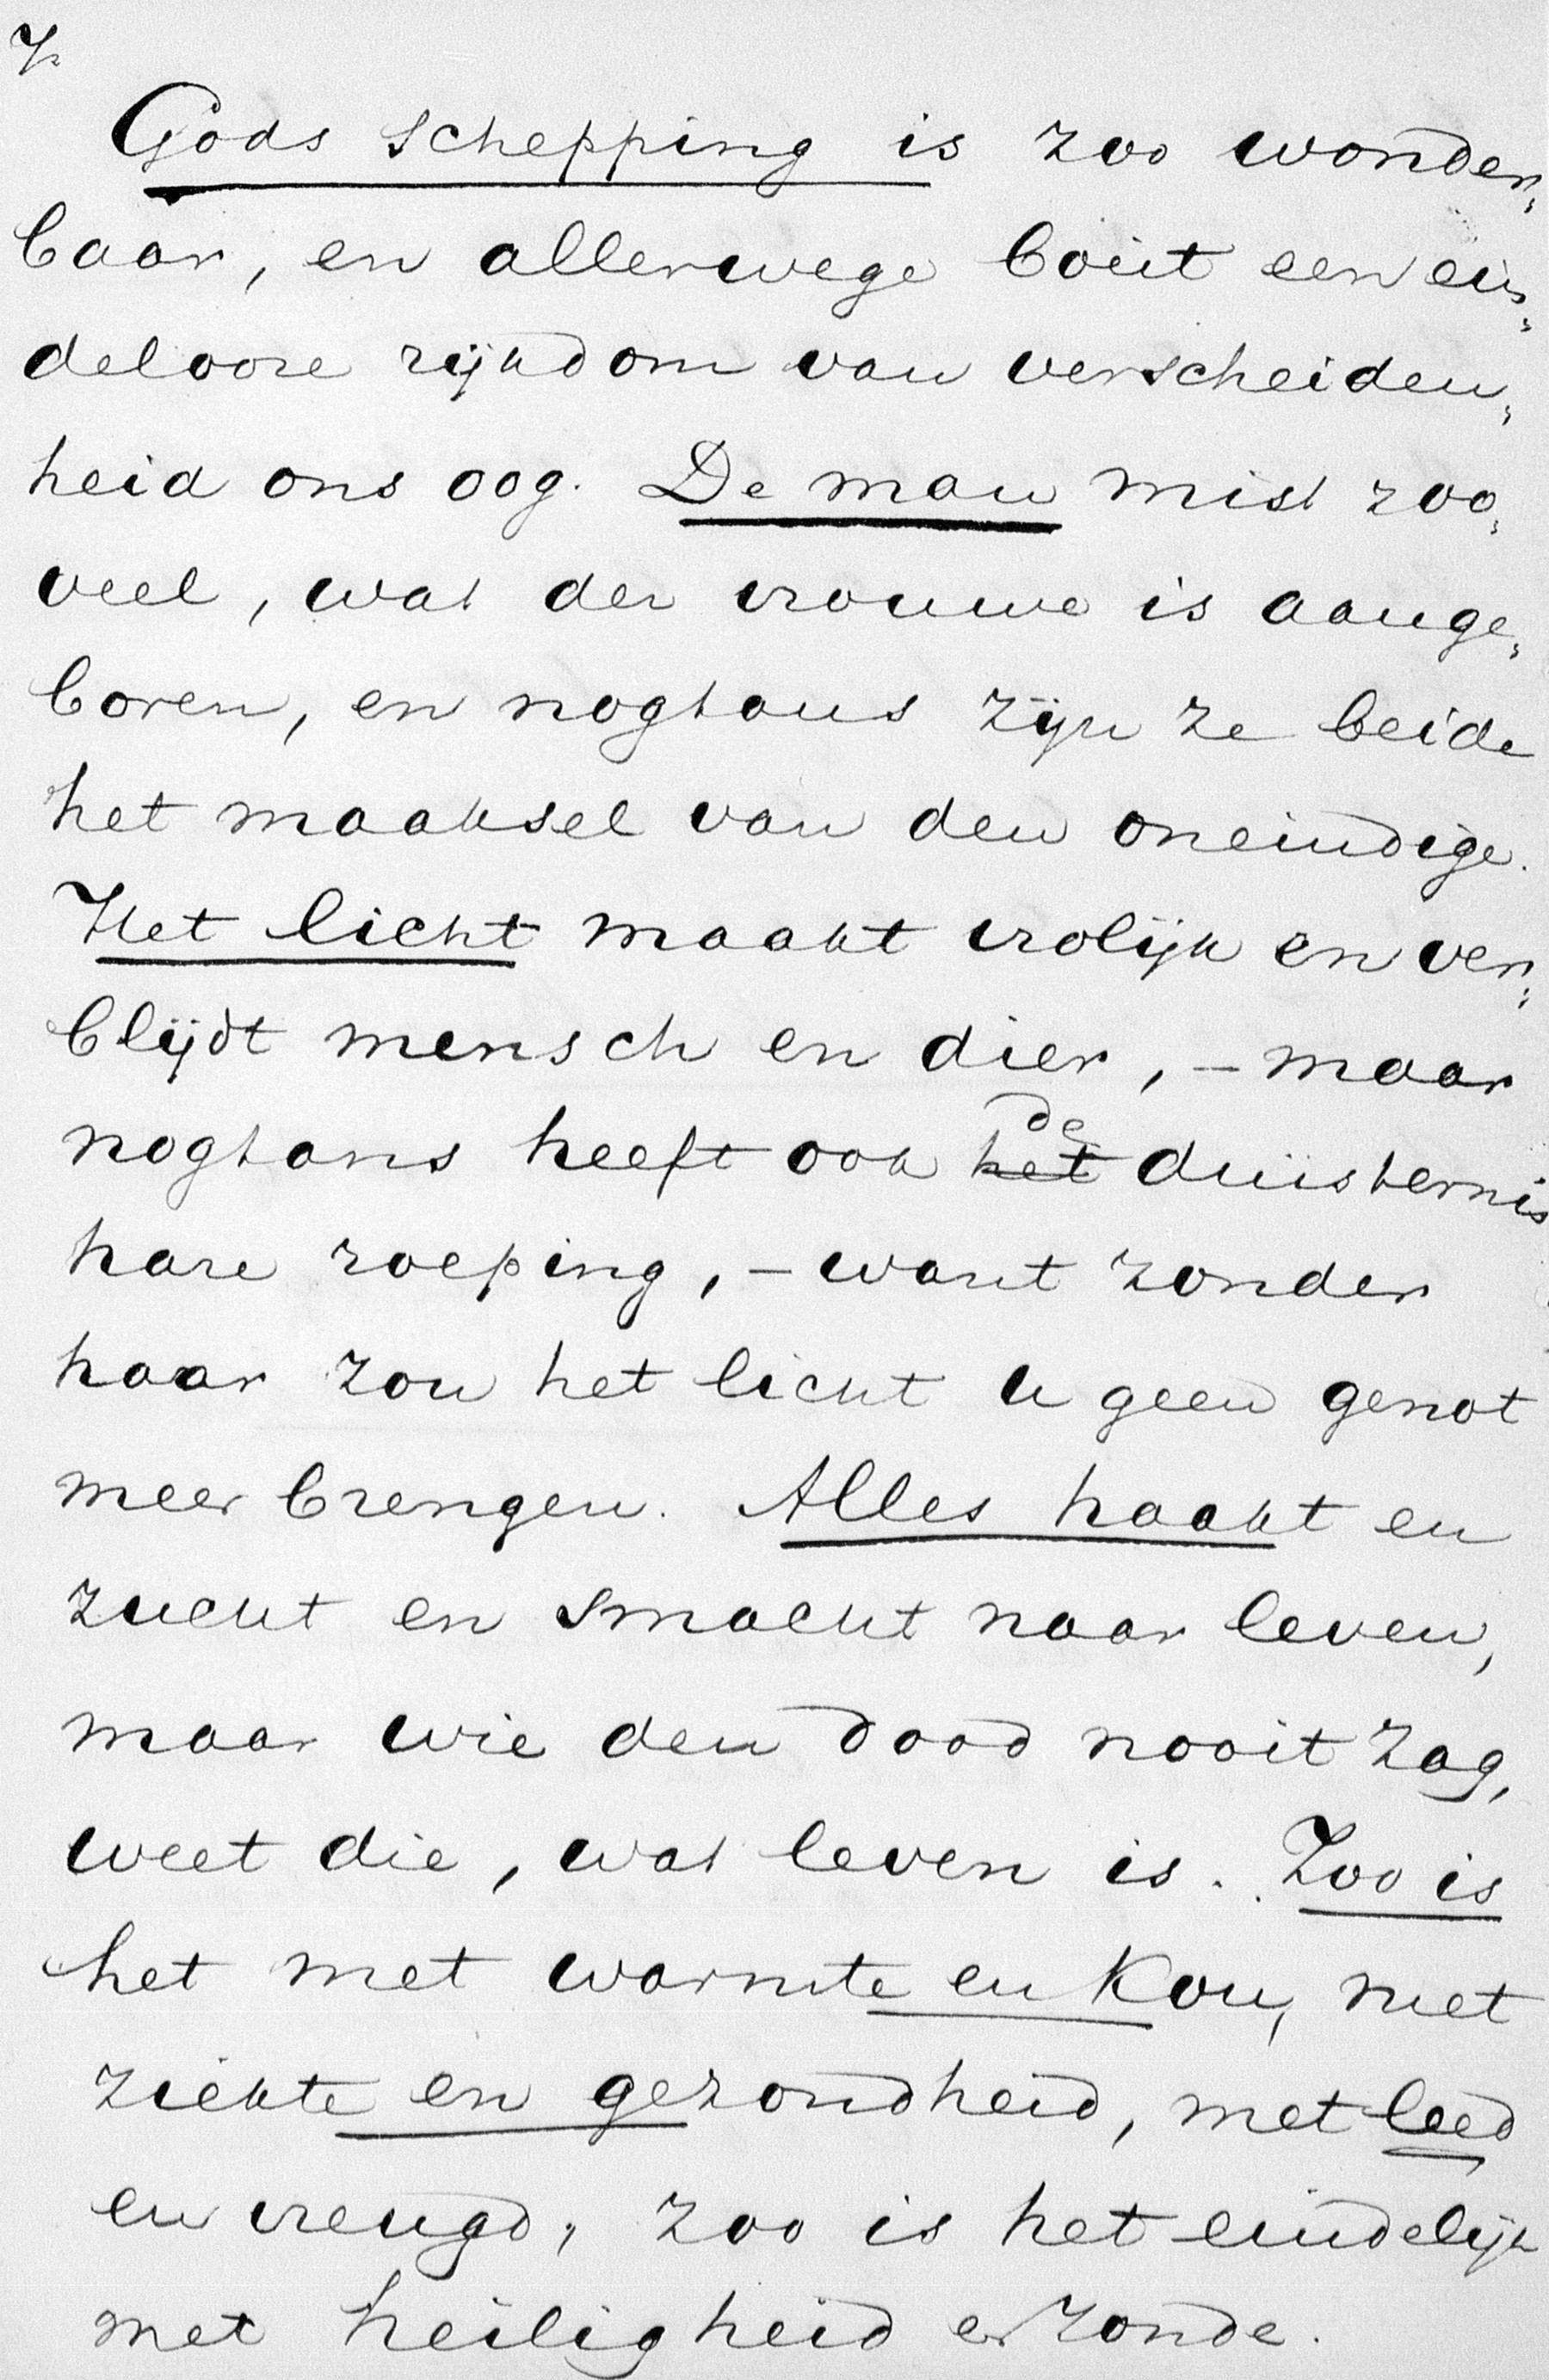 7.
Gods schepping is zoo wonder„
baar, en allerwege boeit een ein„
deloose rijkdom van verscheiden„
heid ons oog. De man mist zoo„
veel, wat der vrouwe is aange„
boren, en nogtans zijn ze beide
het maaksel van den oneindige.
Het licht maakt vrolijk en ver„
blijdt mensch en dier, – maar
de
nogtans heeft ook het duisternis
hare roeping, – want zonder
haar zou het licht u geen genot
meer brengen. Alles haakt en
zucht en smacht naar leven,
maar wie den dood nooit zag,
weet die, wat leven is. Zoo is
het met warmte en kou, met
ziekte en gezondheid, met leed
en vreugd, zoo is het eindelijk
met heiligheid en zonde.